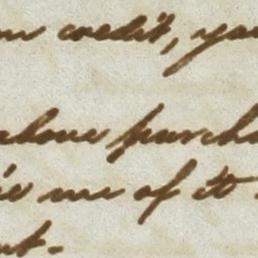 credit, you
above purcha
me of it